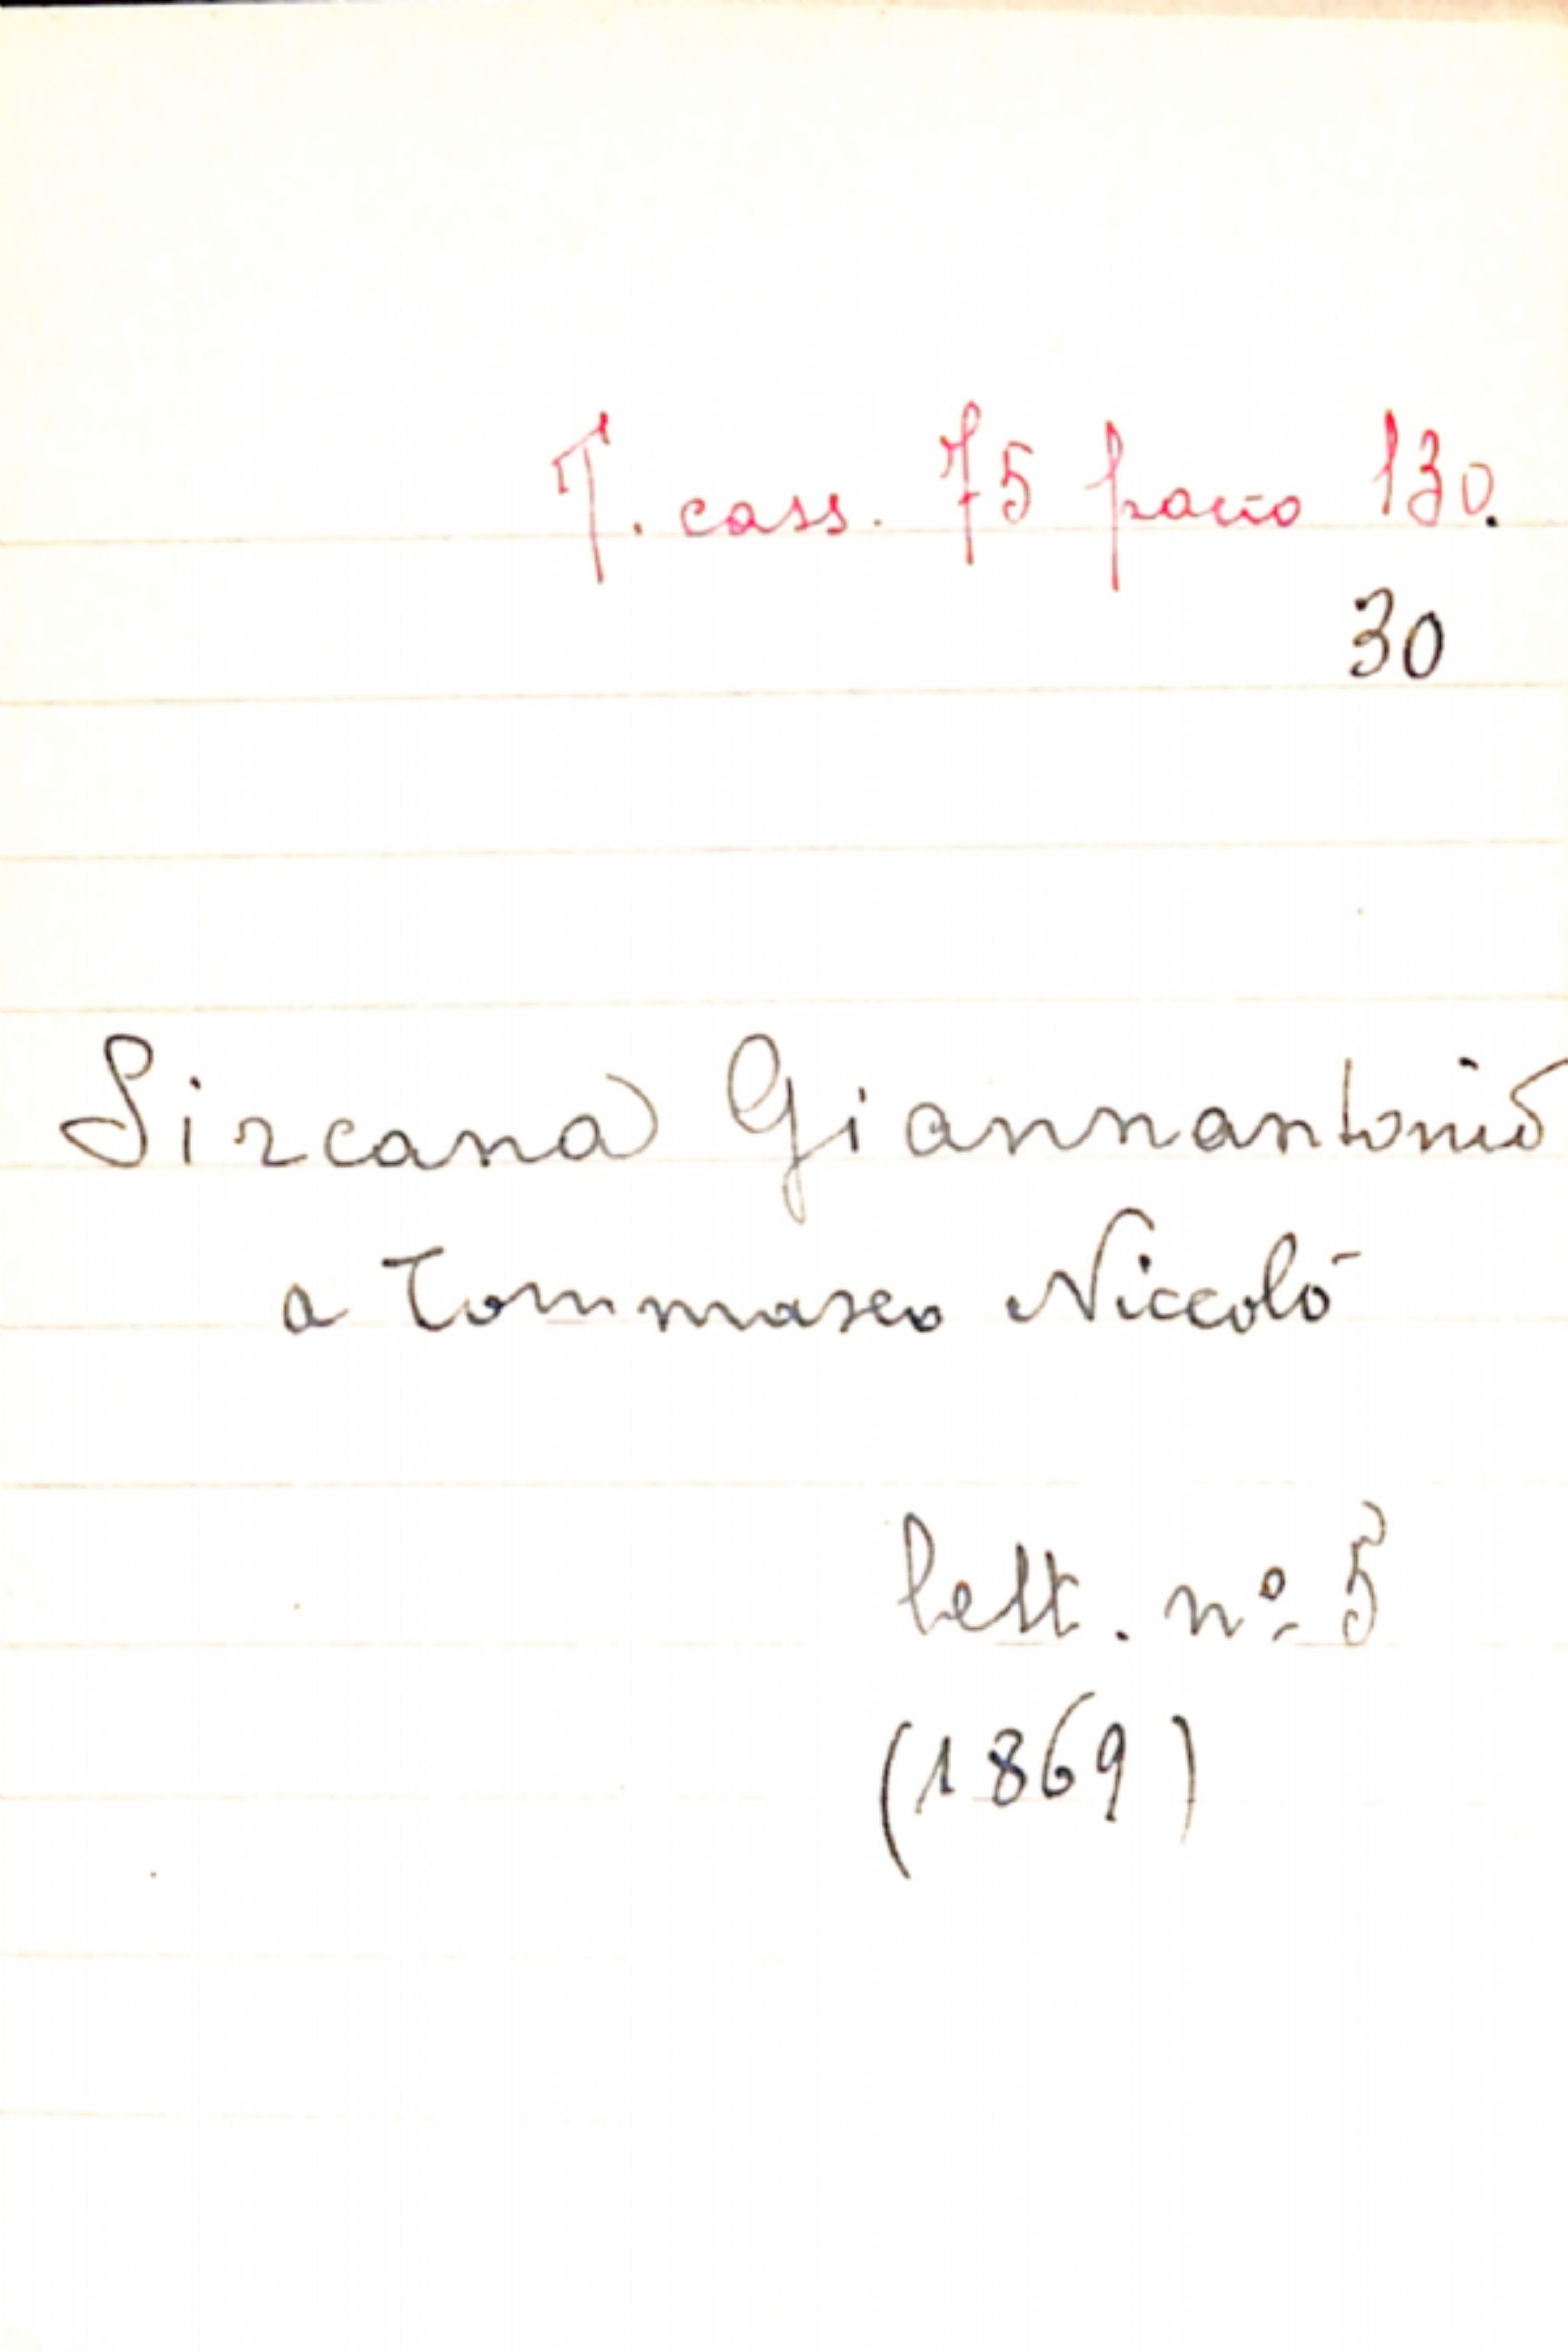 T. cass. 75 pacco 130.
30
Sircana Giannantonio
a Tommaseo Niccolò
lett. nº 5
(1869)